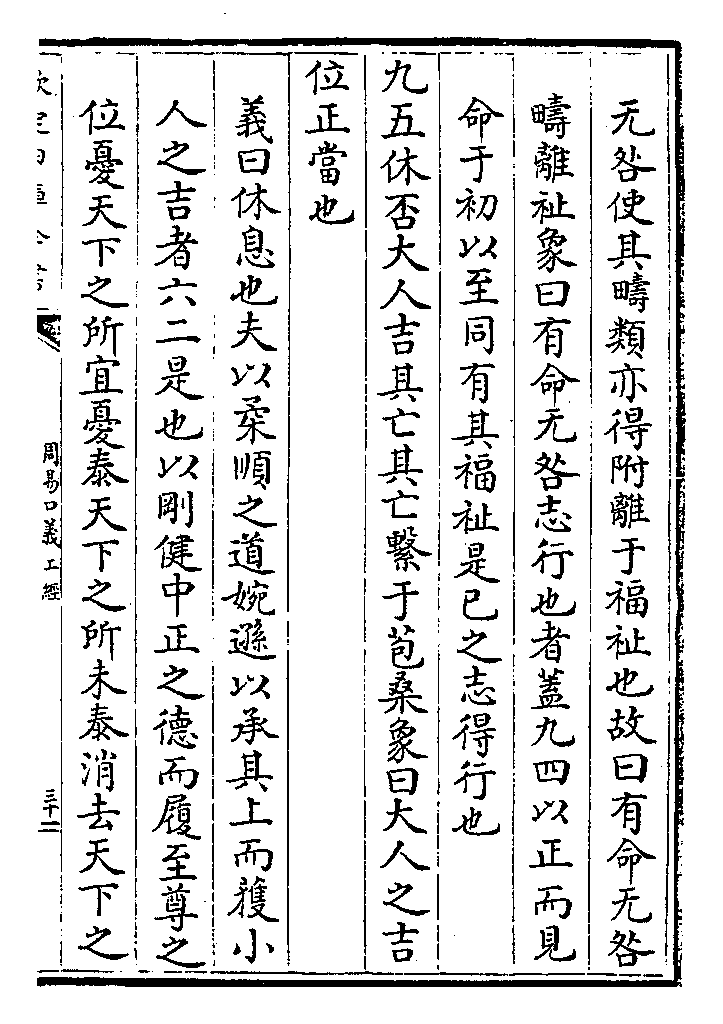 无咎使其疇類亦得附離于福祉也故曰有命无咎
疇離祉象曰有命无咎志行也者蓋九四以正而見
命于初以至同有其福祉是已之志得行也
九五休否大人吉其亡其亡繫于苞桑象曰大人之吉
位正當也
義曰休息也夫以柔順之道婉遜以承其上而獲小
人之吉者六二是也以剛健中正之德而履至尊之
位憂天下之所宜憂泰天下之所未泰消去天下之
周易口義上經
三十一